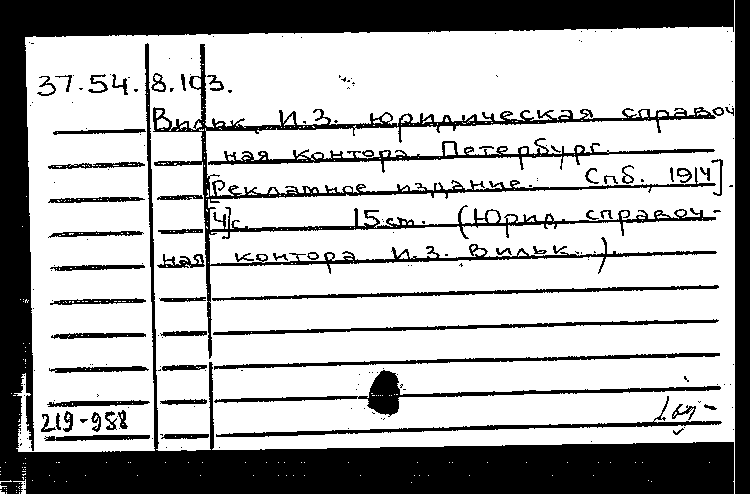 37.54.8.103.
Вильк, И.З., юридическая справоч
ная контора. Петербург.
[Рекламное издание. Спб., 1914].
[4]с. 15см. (Юрид. справоч-
ная контора И.З. Вильк.)
219-958